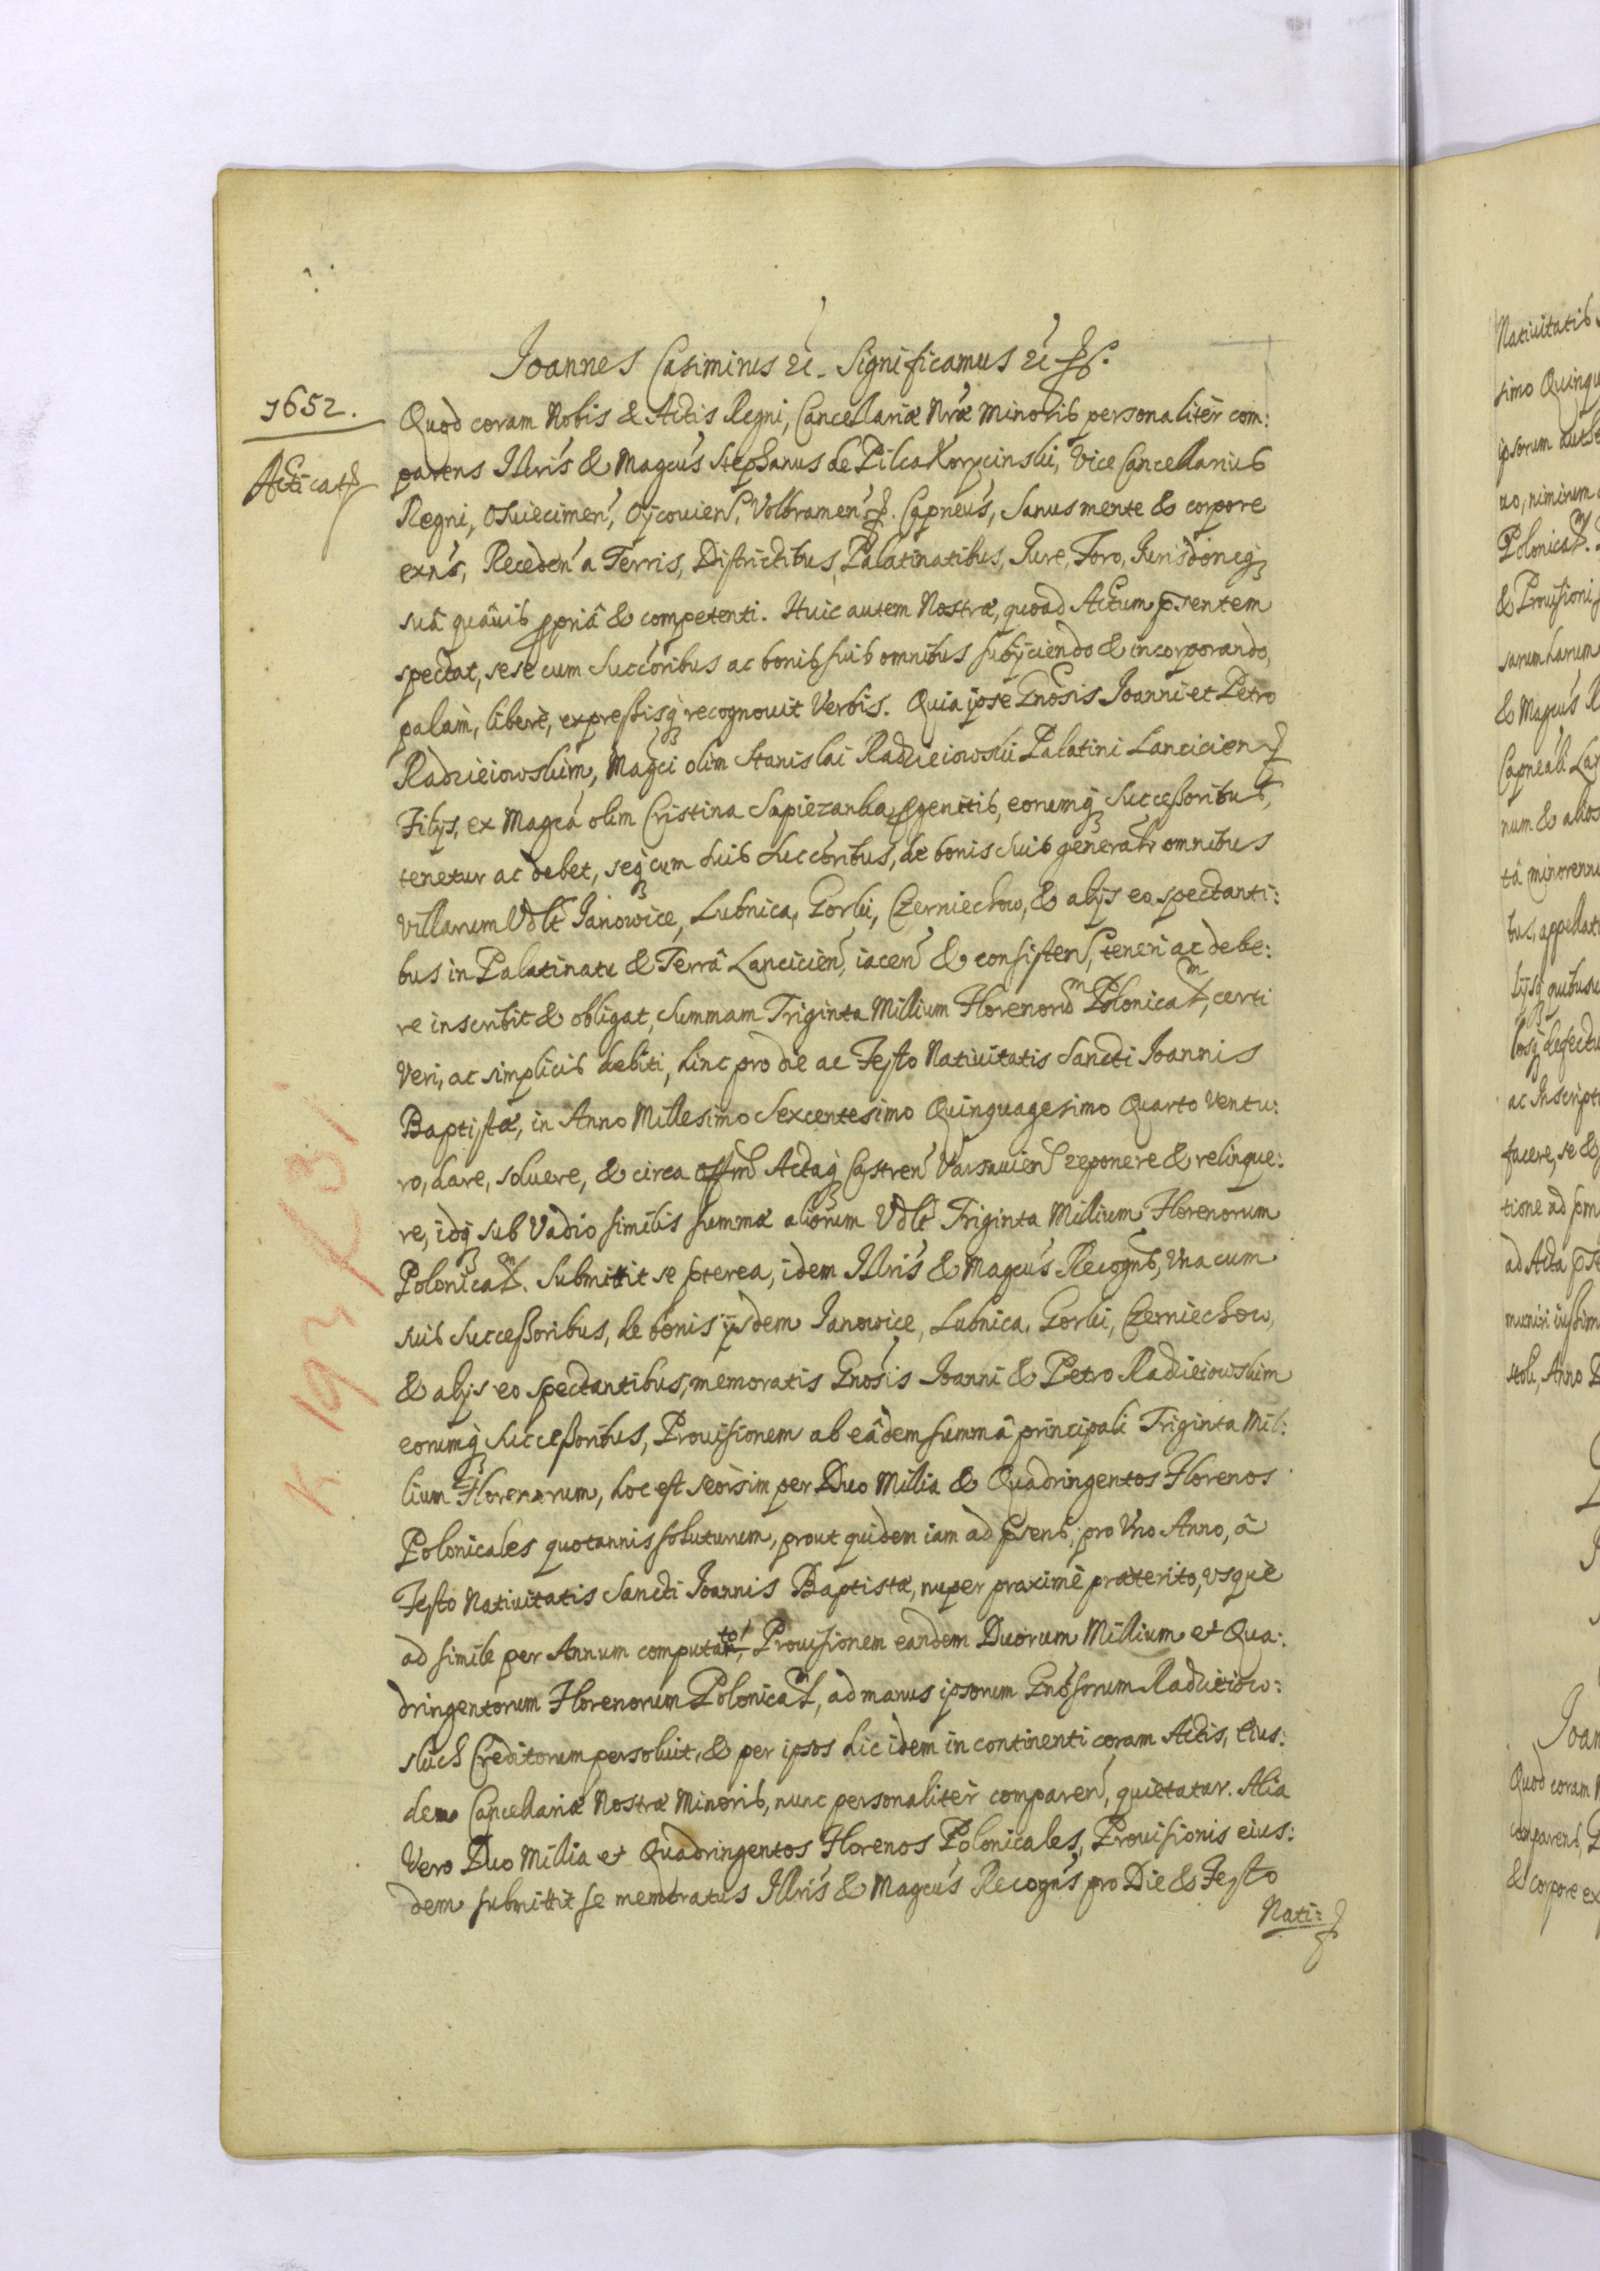 Joannes Casimirus etc. Significamus etc.
1652.
Acticat
Quod coram Nobis & Actis Regni, Cancellariæ Nræ Minoris personaliter com:
parens Illris & Magcus Stephanus de Pilca Korycinski, Vice Cancellarius
Regni, Osviecimen, Oycovien, Volbramen. Capneus, Sanus mente & corpore
exns, Recedens a Terris, Districtibus, Palatinatibus, Iure, Foro, Iurisdoneq
suâ quâvis ppriâ & competenti. Huic autem Nostræ, quoad Actum psentem
spectat, sese cum Succoribus ac bonis suis omnibus subijciendo & incorporando,
palàm, liberè, expressisq recognovit Verbis. Quia ipse Gnosis Joanni et Petro
Radzieiowskim, Magci olim Stanislai Radzieiowski Palatini Lancicien
Filijs, ex Magca olim Cristina Sapiezanka pgenitis, eorumq Successoribus,
tenetur ac debet, seq cum suis succoribus, de bonis suis generalr omnibus
Villarum Vdlt Janowice, Lubnica, Gorki, Czerniechow, & alijs eo spectanti:
bus in Palatinatu & Terrâ Lancicien, iacen & consisten, teneri ac debe:
re inscribit & obligat, Summam Triginta Millium Florenorum Polonical, certi
veri, ac simplicis debiti, hinc pro die ac Festo Nativitatis Sancti Joannis
Baptistæ, in Anno Millesimo Sexcentesimo Quinquagesimo Quarto Ventu:
ro, dare, solvere, & circa Offm Actaq Castren Varsavien reponere & relinque:
re, idq sub Vadio similis summæ aliorum Vdlt Triginta Millium Florenorum
Polonical. Submittit se pterea, idem Illris & Magcus Recogns, Vna cum
suis Successoribus, de bonis ijsdem Janowice, Lubnica, Gorki, Czerniechow,
& alijs eo spectantibus, memoratis Gnosis Joanni & Petro Radzieiowskim
eorumq Successoribus, Provisionem ab eâdem summâ principali Triginta Mil:
lium Florenorum, hoc est seorsim per Duo Millia & Quadringentos Florenos
Polonicales quotannis soluturum, prout quidem iam ad psens, pro Vno Anno, â
Festo Nativitatis Sancti Joannis Baptistæ, nuper proximè præterito, vsquè
ad simile per Annum computato, Provisionem eandem Duorum Millium et Qua:
dringentorum Florenorum Polonical, ad manus ipsorum Gnosorum Radzieiow:
skich Creditorum persolvit, & per ipsos hic idem in continenti coram Actis, Eius:
dem Cancellariæ Nostræ Minoris, nunc personaliter comparen, quietatur. Alia
Vero Duo Millia et Quadringentos Florenos Polonicales, Provisionis eius:
dem submittit se memoratus Illris & Magcus Recogns pro Die & Festo
Nati: